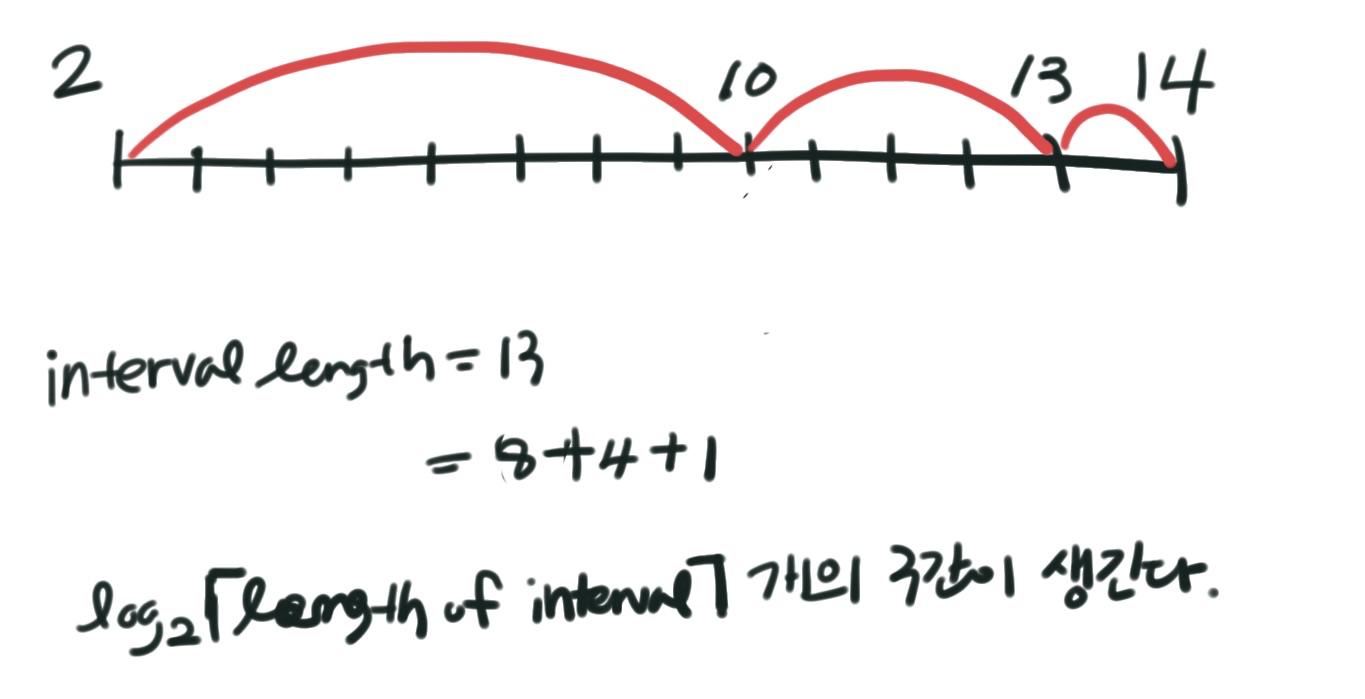 2 10 13 14
interval length = 13
= 8+4+1
log₂⌈length of interval⌉ 개의 구간이 생긴다.